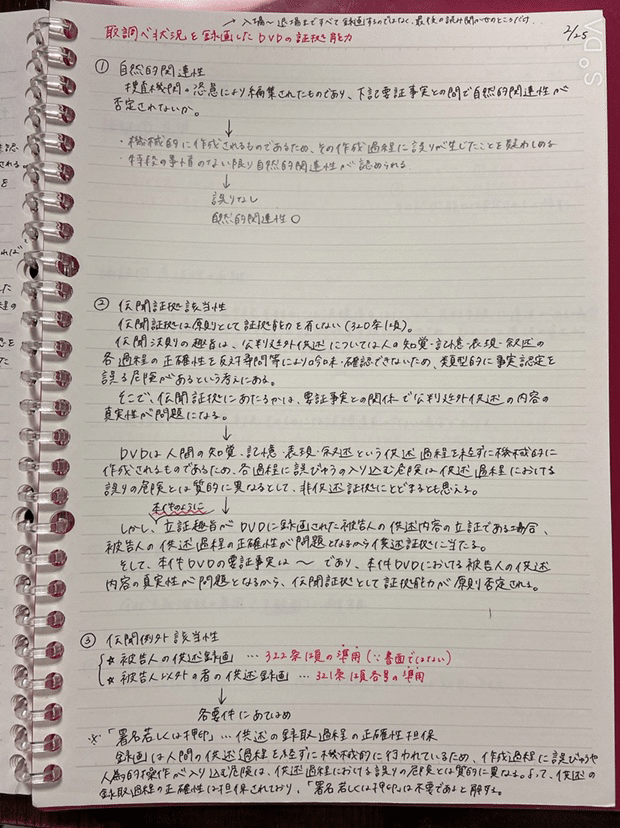 → 入場～退場まですべて録画するのではなく、最後の読み聞かせのところだけ
取調べ状況を録画したDVDの証拠能力
2/25
SODA
① 自然的関連性
捜査機関の恣意により編集されたものであり、下記要証事実との間で自然的関連性が
否定されないか。
↓
・機械的に作成されるものであるため、その作成過程に誤りが生じたことを疑わしめる
・特段の事情のない限り自然的関連性が認められる
↓
誤りなし
自然的関連性○
② 伝聞証拠該当性
伝聞証拠は原則として証拠能力を有しない(320条1項)。
伝聞法則の趣旨は、公判廷外供述については人の知覚・記憶・表現・叙述の
各過程の正確性を反対尋問等により吟味・確認できないため、類型的に事実認定を
誤る危険があるという考えにある。
そこで、伝聞証拠にあたるかは、要証事実との関係で公判廷外供述の内容の
真実性が問題になる。
↓
DVDは人間の知覚・記憶・表現・叙述という供述過程を経ずに機械的に
作成されるものであるため、各過程に誤びゅうの入り込む危険は供述過程における
誤りの危険とは質的に異なるとして、非供述証拠にとどまるとも思える。
本件のように ↓
しかし、立証趣旨がDVDに録画された被告人の供述内容の立証である場合、
被告人の供述過程の正確性が問題となるから供述証拠に当たる。
そして、本件DVDの要証事実は～であり、本件DVDにおける被告人の供述
内容の真実性が問題となるから、伝聞証拠として証拠能力が原則否定される。
③ 伝聞例外該当性
☆ 被告人の供述録画 … 322条1項の準用(∵書面ではない)
☆ 被告人以外の者の供述録画 … 321条1項各号の準用
↓
各要件にあてはめ
※「署名若しくは押印」… 供述の録取過程の正確性担保
録画は人間の供述過程を経ずに機械的に行われているため、作成過程に誤びゅうや
人為的操作が入り込む危険は、供述過程における誤りの危険とは質的に異なる。よって、供述の
録取過程の正確性は担保されており、「署名若しくは押印」は不要であると解する。